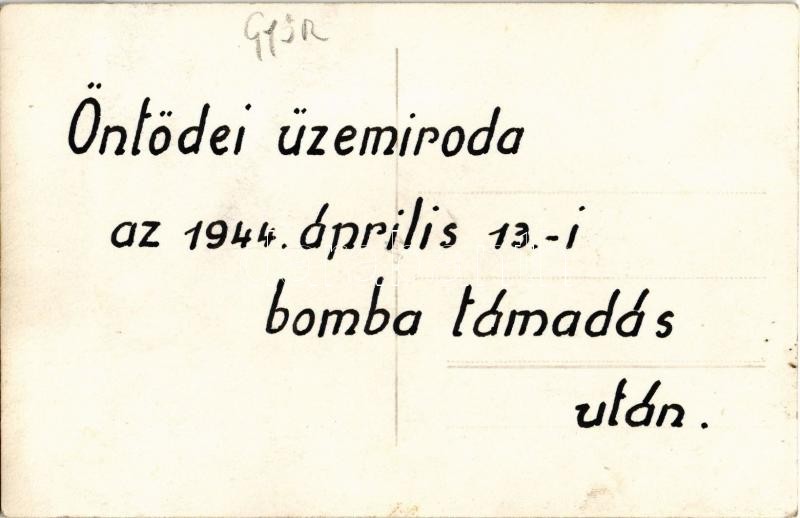 GYŐR
Öntödei üzemiroda
az 1944. április 13.-i
bomba támadás
után.